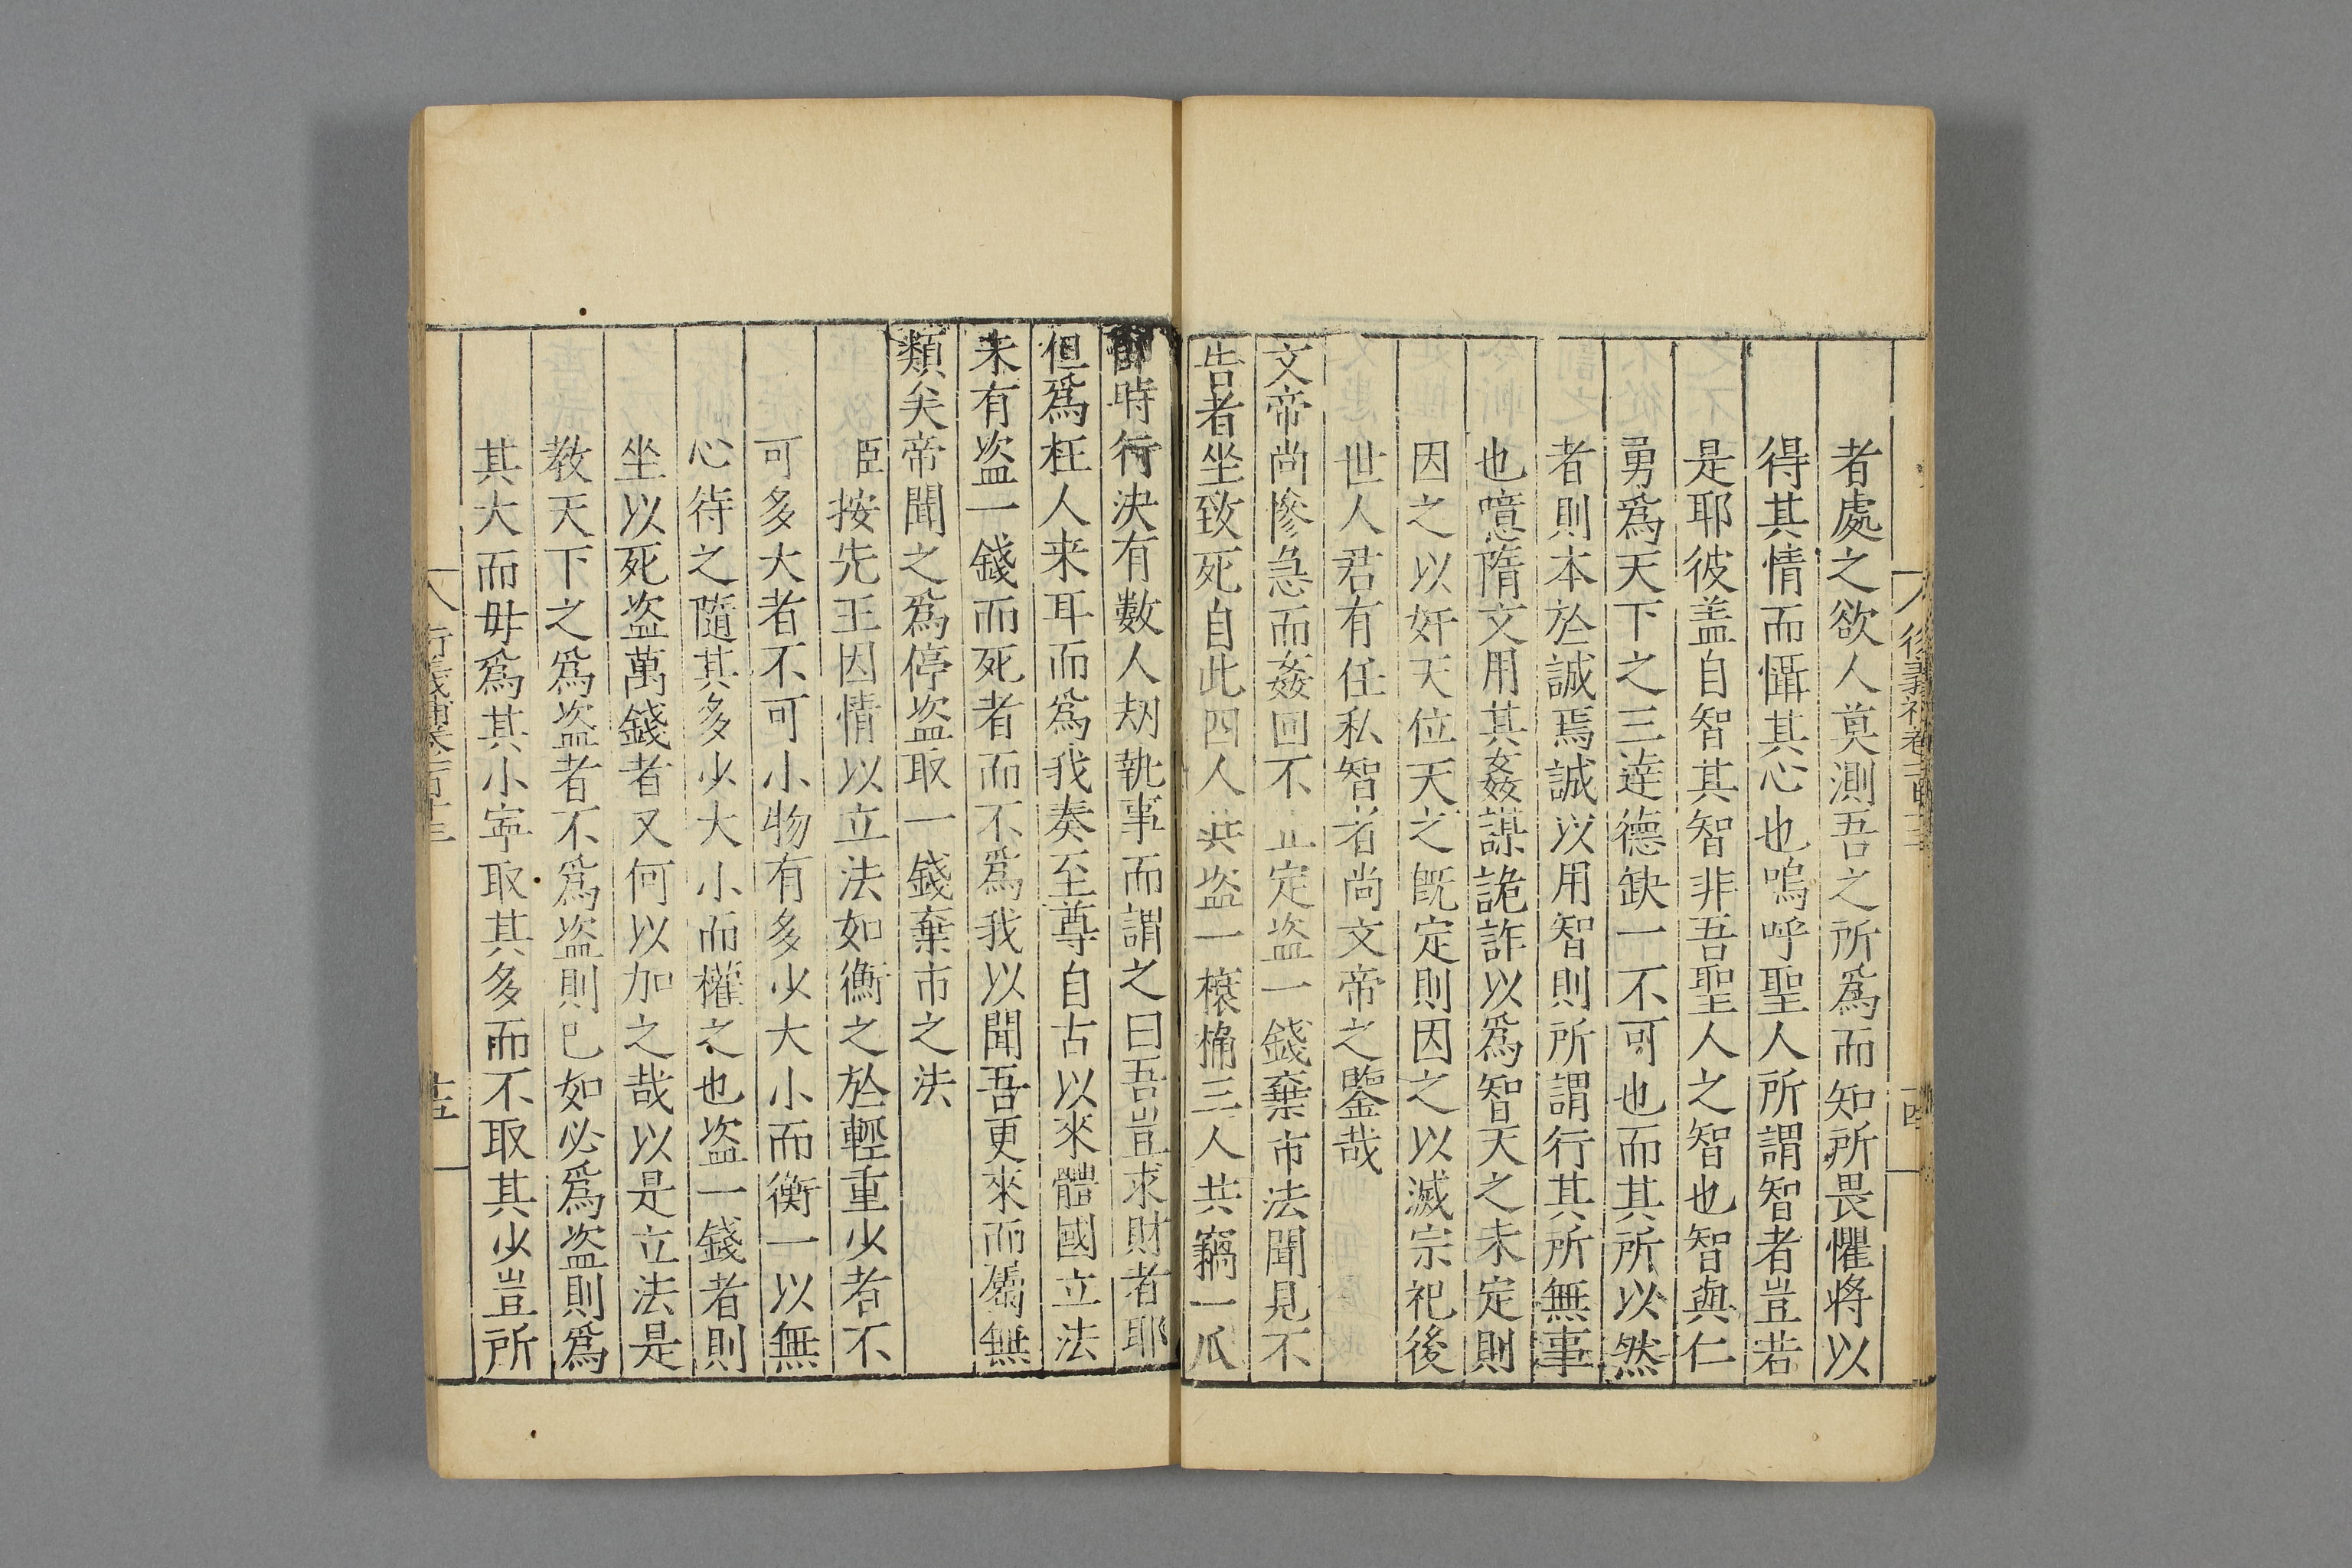 者處之欲人莫測吾之所爲而知所畏懼將以
得其情而懾其心也嗚呼聖人所謂智者豈若
是耶彼盖自智其智非吾聖人之智也智與仁
勇爲天下之三達德缺一不可也而其所以然
者則本於誠焉誠以用智則所謂行其所無事
也噫隋文用其姦謀詭詐以爲智天之未定則
因之以奸天位天之既定則因之以滅宗祀後
世人君有任私智者尚文帝之鑒哉
文帝尚慘急而姦回不止定盗一錢棄市法聞見不
告者坐致死自此四人共盗一榱桷三人共竊一瓜
即時行決有數人刼執事而謂之曰吾豈求財者耶
但爲枉人来耳而爲我奏至尊自古以來體國立法
未有盗一錢而死者而不爲我以聞吾更來而屬無
類矣帝聞之爲停盗取一錢棄市之法
臣按先王因情以立法如衡之於輕重少者不
可多大者不可小物有多少大小而衡一以無
心待之隨其多少大小而權之也盗一錢者則
坐以死盗萬錢者又何以加之哉以是立法是
教天下之爲盗者不爲盗則已如必爲盗則爲
其大而毋爲其小寧取其多而不取其少豈所